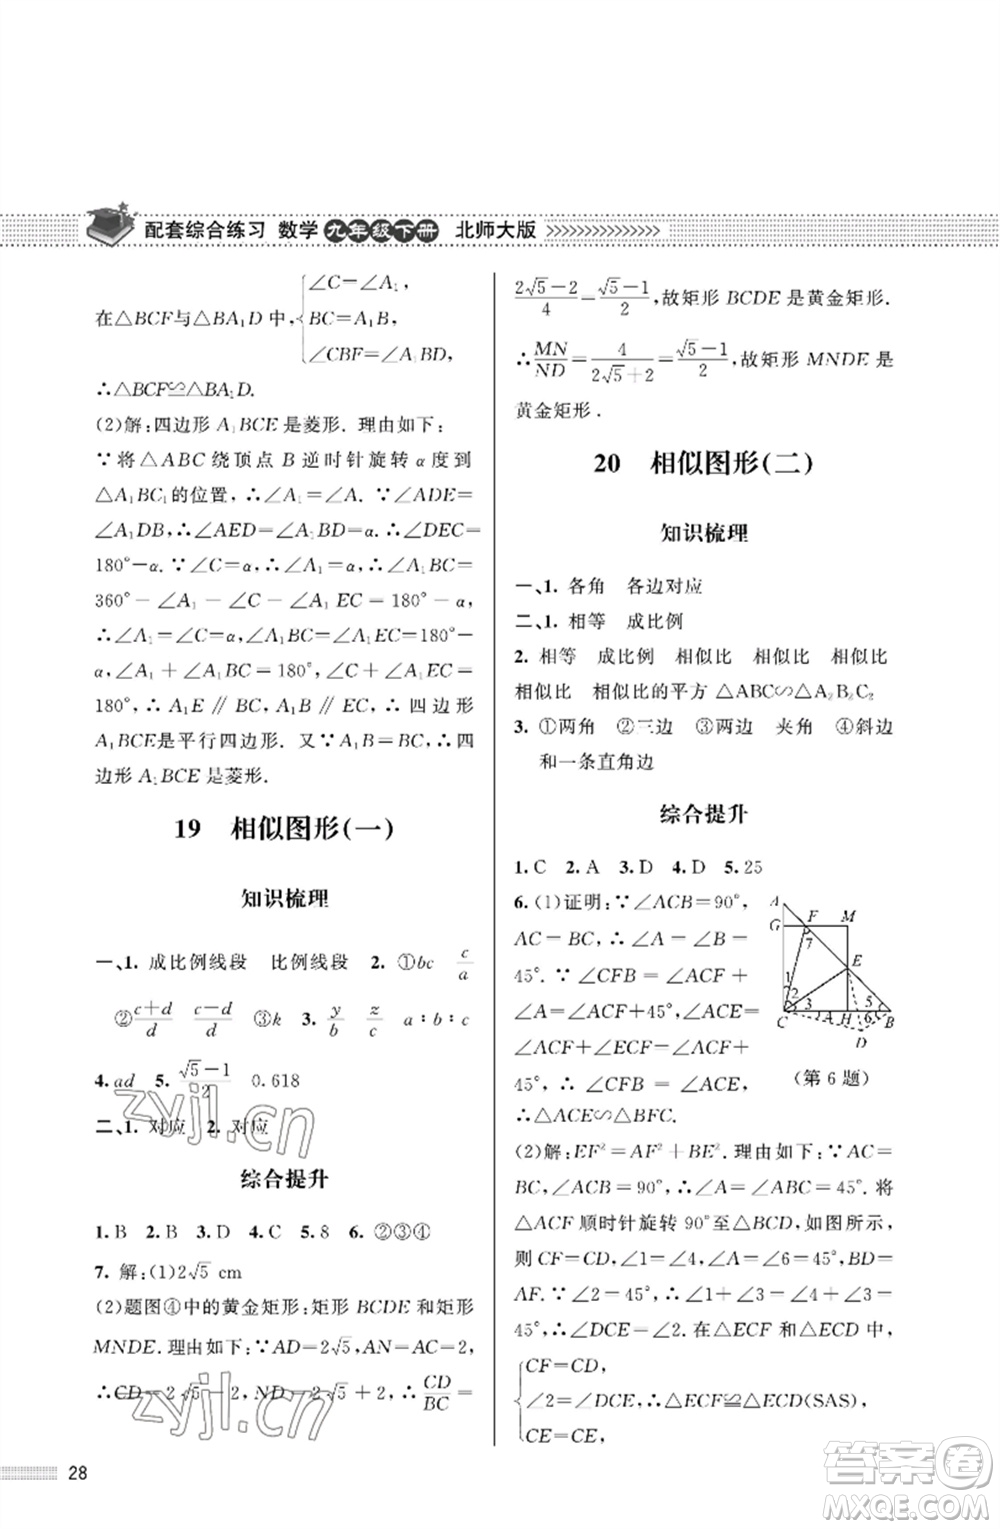 配套综合练习 数学九年级下册 北师大版
在△BCF与△BA₁D中,{∠C=∠A₁,
BC=A₁B,
∠CBF=∠A₁BD,
∴△BCF≌△BA₁D.
(2)解:四边形A₁BCE是菱形. 理由如下:
∵将△ABC绕顶点B逆时针旋转α度到
△A₁BC₁的位置,∴∠A₁=∠A.∵∠ADE=
∠A₁DB,∴∠AED=∠A₁BD=α.∴∠DEC=
180°-α.∵∠C=α,∴∠A₁=α.∴∠A₁BC=
360°-∠A₁-∠C-∠A₁EC=180°-α.
∴∠A₁=∠C=α,∠A₁BC=∠A₁EC=180°-
α,∠A₁+∠A₁BC=180°,∠C+∠A₁BC=
180°,∴A₁E∥BC,A₁B∥CE,∴四边形
A₁BCE是平行四边形. 又∵BC=A₁B,∴四
边形A₁BCE是菱形.
19 相似图形(一)
知识梳理
一、1. 成比例线段 比例线段 2. ①bc c/a
②(c+d)/d (c-d)/d ③k 3. y/b z/c a∶b∶c
4. ad 5. (√5-1)/2 0.618
二、1. 对应 2. 对应
综合提升
1. B 2. B 3. D 4. C 5. 8 6. ②③④
7. 解:(1)2√5 cm
(2)题图④中的黄金矩形:矩形BCDE和矩形
MNDE. 理由如下:∵AD=2√5,AN=AC=2,
∴CD=2√5-2,ND=2√5+2,∴CD/BC=
(2√5-2)/4=(√5-1)/2,故矩形BCDE是黄金矩形.
∴MN/ND=4/(2√5+2)=(√5-1)/2,故矩形MNDE是
黄金矩形.
20 相似图形(二)
知识梳理
一、1. 各角 各边对应
二、1. 相等 成比例
2. 相等 成比例 相似比 相似比 相似比
相似比 相似比的平方 △ABC∽△A₂B₂C₂
3. ①两角 ②三边 ③两边 夹角 ④斜边
和一条直角边
综合提升
1. C 2. A 3. D 4. D 5. 25
6. (1)证明:∵∠ACB=90°,
AC=BC,∴∠A=∠B=
45°.∵∠CFB=∠ACF+
∠A=∠ACF+45°,∠ACE=
∠ACF+∠FCE=∠ACF+
45°,∴∠CFB=∠ACE,
∴△ACE∽△BFC.
A
G F M
7
E
1
2 3 4 5
6
C H B
D
(第6题)
(2)解:EF²=AF²+BE². 理由如下:∵AC=
BC,∠ACB=90°,∴∠A=∠ABC=45°. 将
△ACF顺时针旋转90°至△BCD,如图所示,
则CF=CD,∠1=∠4,∠A=∠6=45°,BD=
AF.∵∠2=45°,∴∠1+∠3=∠4+∠3=
45°,∴∠DCE=∠2. 在△ECF和△ECD中,
{CF=CD,
∠2=∠DCE,∴△ECF≌△ECD(SAS),
CE=CE,
28
zyjl.cn
zyjl.cn
答案圈
MXQE.COM